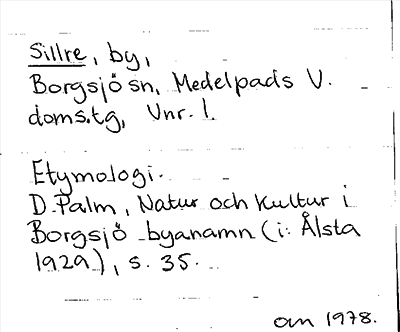 Sillre, by,
Borgsjö sn, Medelpads V.
doms.tg, Vnr. 1.
Etymologi.
D. Palm, Natur och Kultur i
Borgsjö - byanamn (i: Ålsta
1929), s. 35.
am 1978.